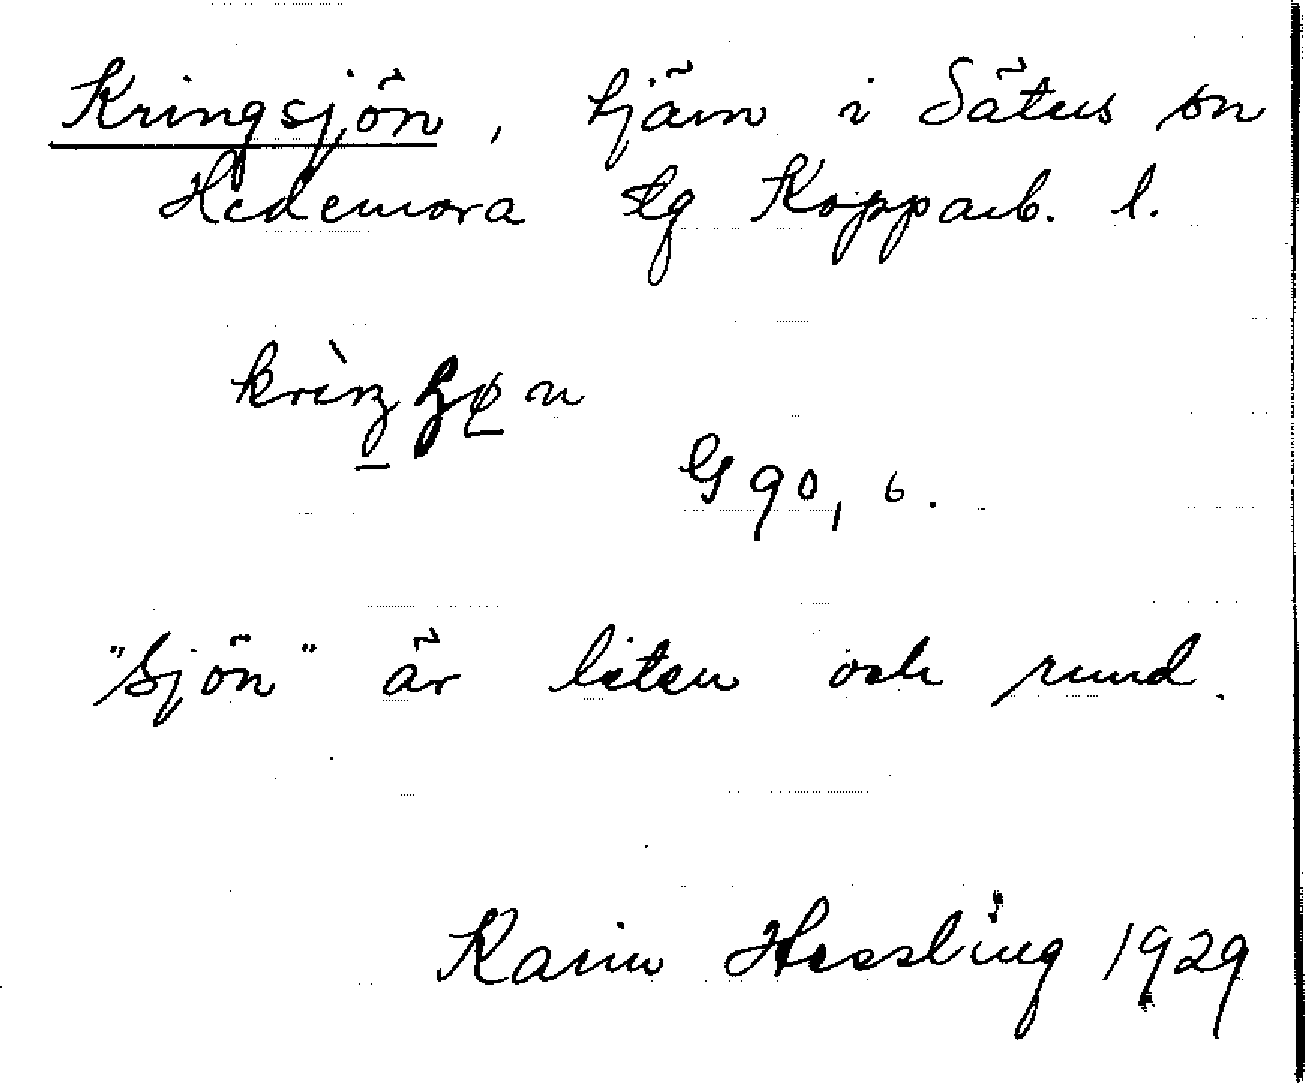 Kringsjön, tjärn i Säters sn
Hedemora tlg Kopparb. l.
G 90, 6.
"Sjön" är liten och rund.
Karin Hessling 1929